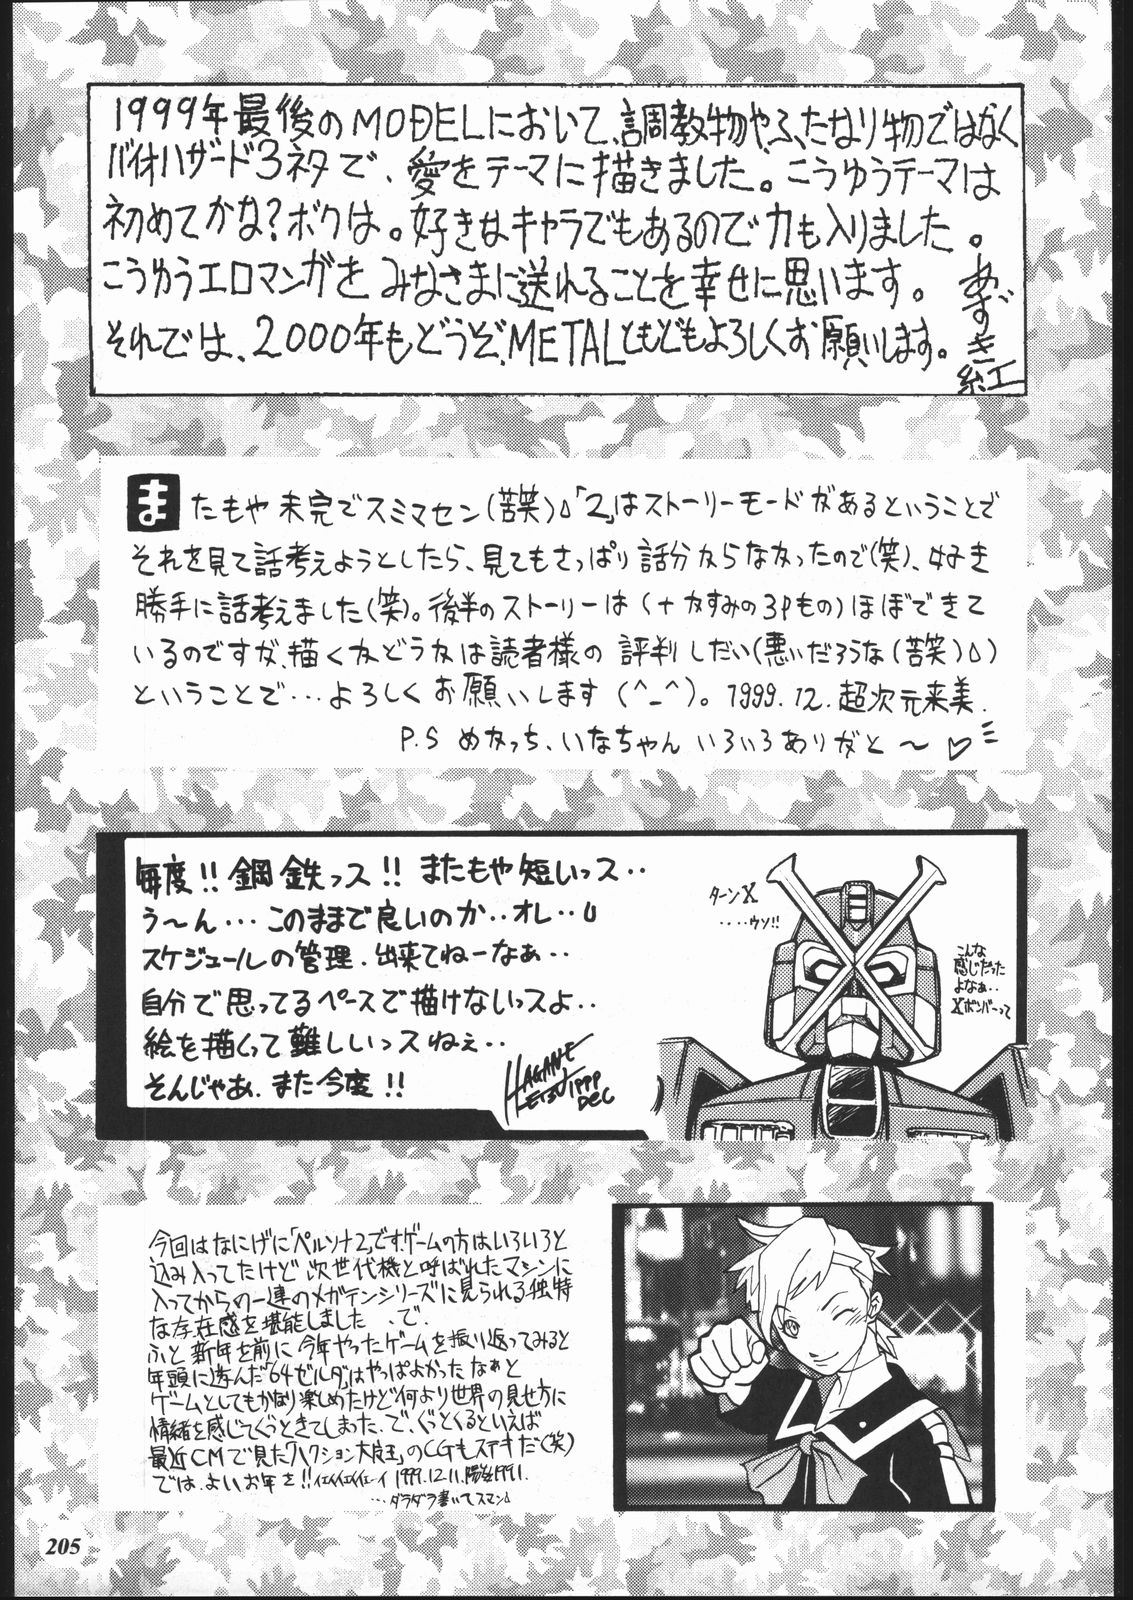 1999年最後のMODELにおいて、調教物や、ふたなり物ではなく
バイオハザード3ネタで、愛をテーマに描きました。こうゆうテーマは
初めてかな?ボクは。好きなキャラでもあるので力も入りました。
こうゆうエロマンガをみなさまに送れることを幸せに思います。
それでは、2000年もどうぞ、METALともどもよろしくお願いします。
あずき紅
またもや未完でスミマセン(苦笑)「2」はストーリーモードがあるということで
それを見て話考えようとしたら、見てもさっぱり話分からなかったので(笑)、好き
勝手に話考えました(笑)。後半のストーリーは(+かすみの3Pもの)ほぼできて
いるのですが、描くかどうかは読者様の評判しだい(悪いだろうな(苦笑))
ということで…よろしくお願いします(^_^)。1999.12.超次元来美.
P.S めなっち、いなちゃん いろいろありがと〜♡
毎度!!鋼鉄っス!!またもや短いっス‥
う〜ん…このままで良いのか‥オレ‥
スケジュールの管理.出来てねーなぁ‥
自分で思ってるペースで描けないっスよ‥
絵を描くって難しいっスねぇ‥
そんじゃあ.また今度!!
HAGANE TETSU 1999 DEC
ターンX
‥‥ウソ!!
こんな
感じだった
よなぁ‥
Xボンバーって
今回はなにげに「ペルソナ2」です。ゲームの方はいろいろと
込み入ってたけど次世代機と呼ばれたマシンに
入ってからの一連のメガテンシリーズに見られる独特
な存在感を堪能しました 、で、
ふと新年を前に今年やったゲームを振り返ってみると
年頭に遊んだ「64ゼルダ」はやっぱよかったなぁと
ゲームとしてもかなり楽しめたけど何より世界の見せ方に
情緒を感じてぐっときてしまった.で、ぐっとくるといえば
最近CMで見た「ハクション大魔王」のCGもステキだ(笑)
では、よいお年を!!イェイイェイイェーイ 1999.12.11.
…ダラダラ書いてスマン
205